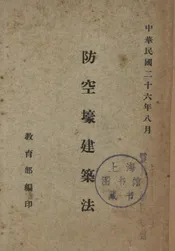 中華民國二十六年八月
防空壕建築法
教育部編印
上海
图书馆
藏书